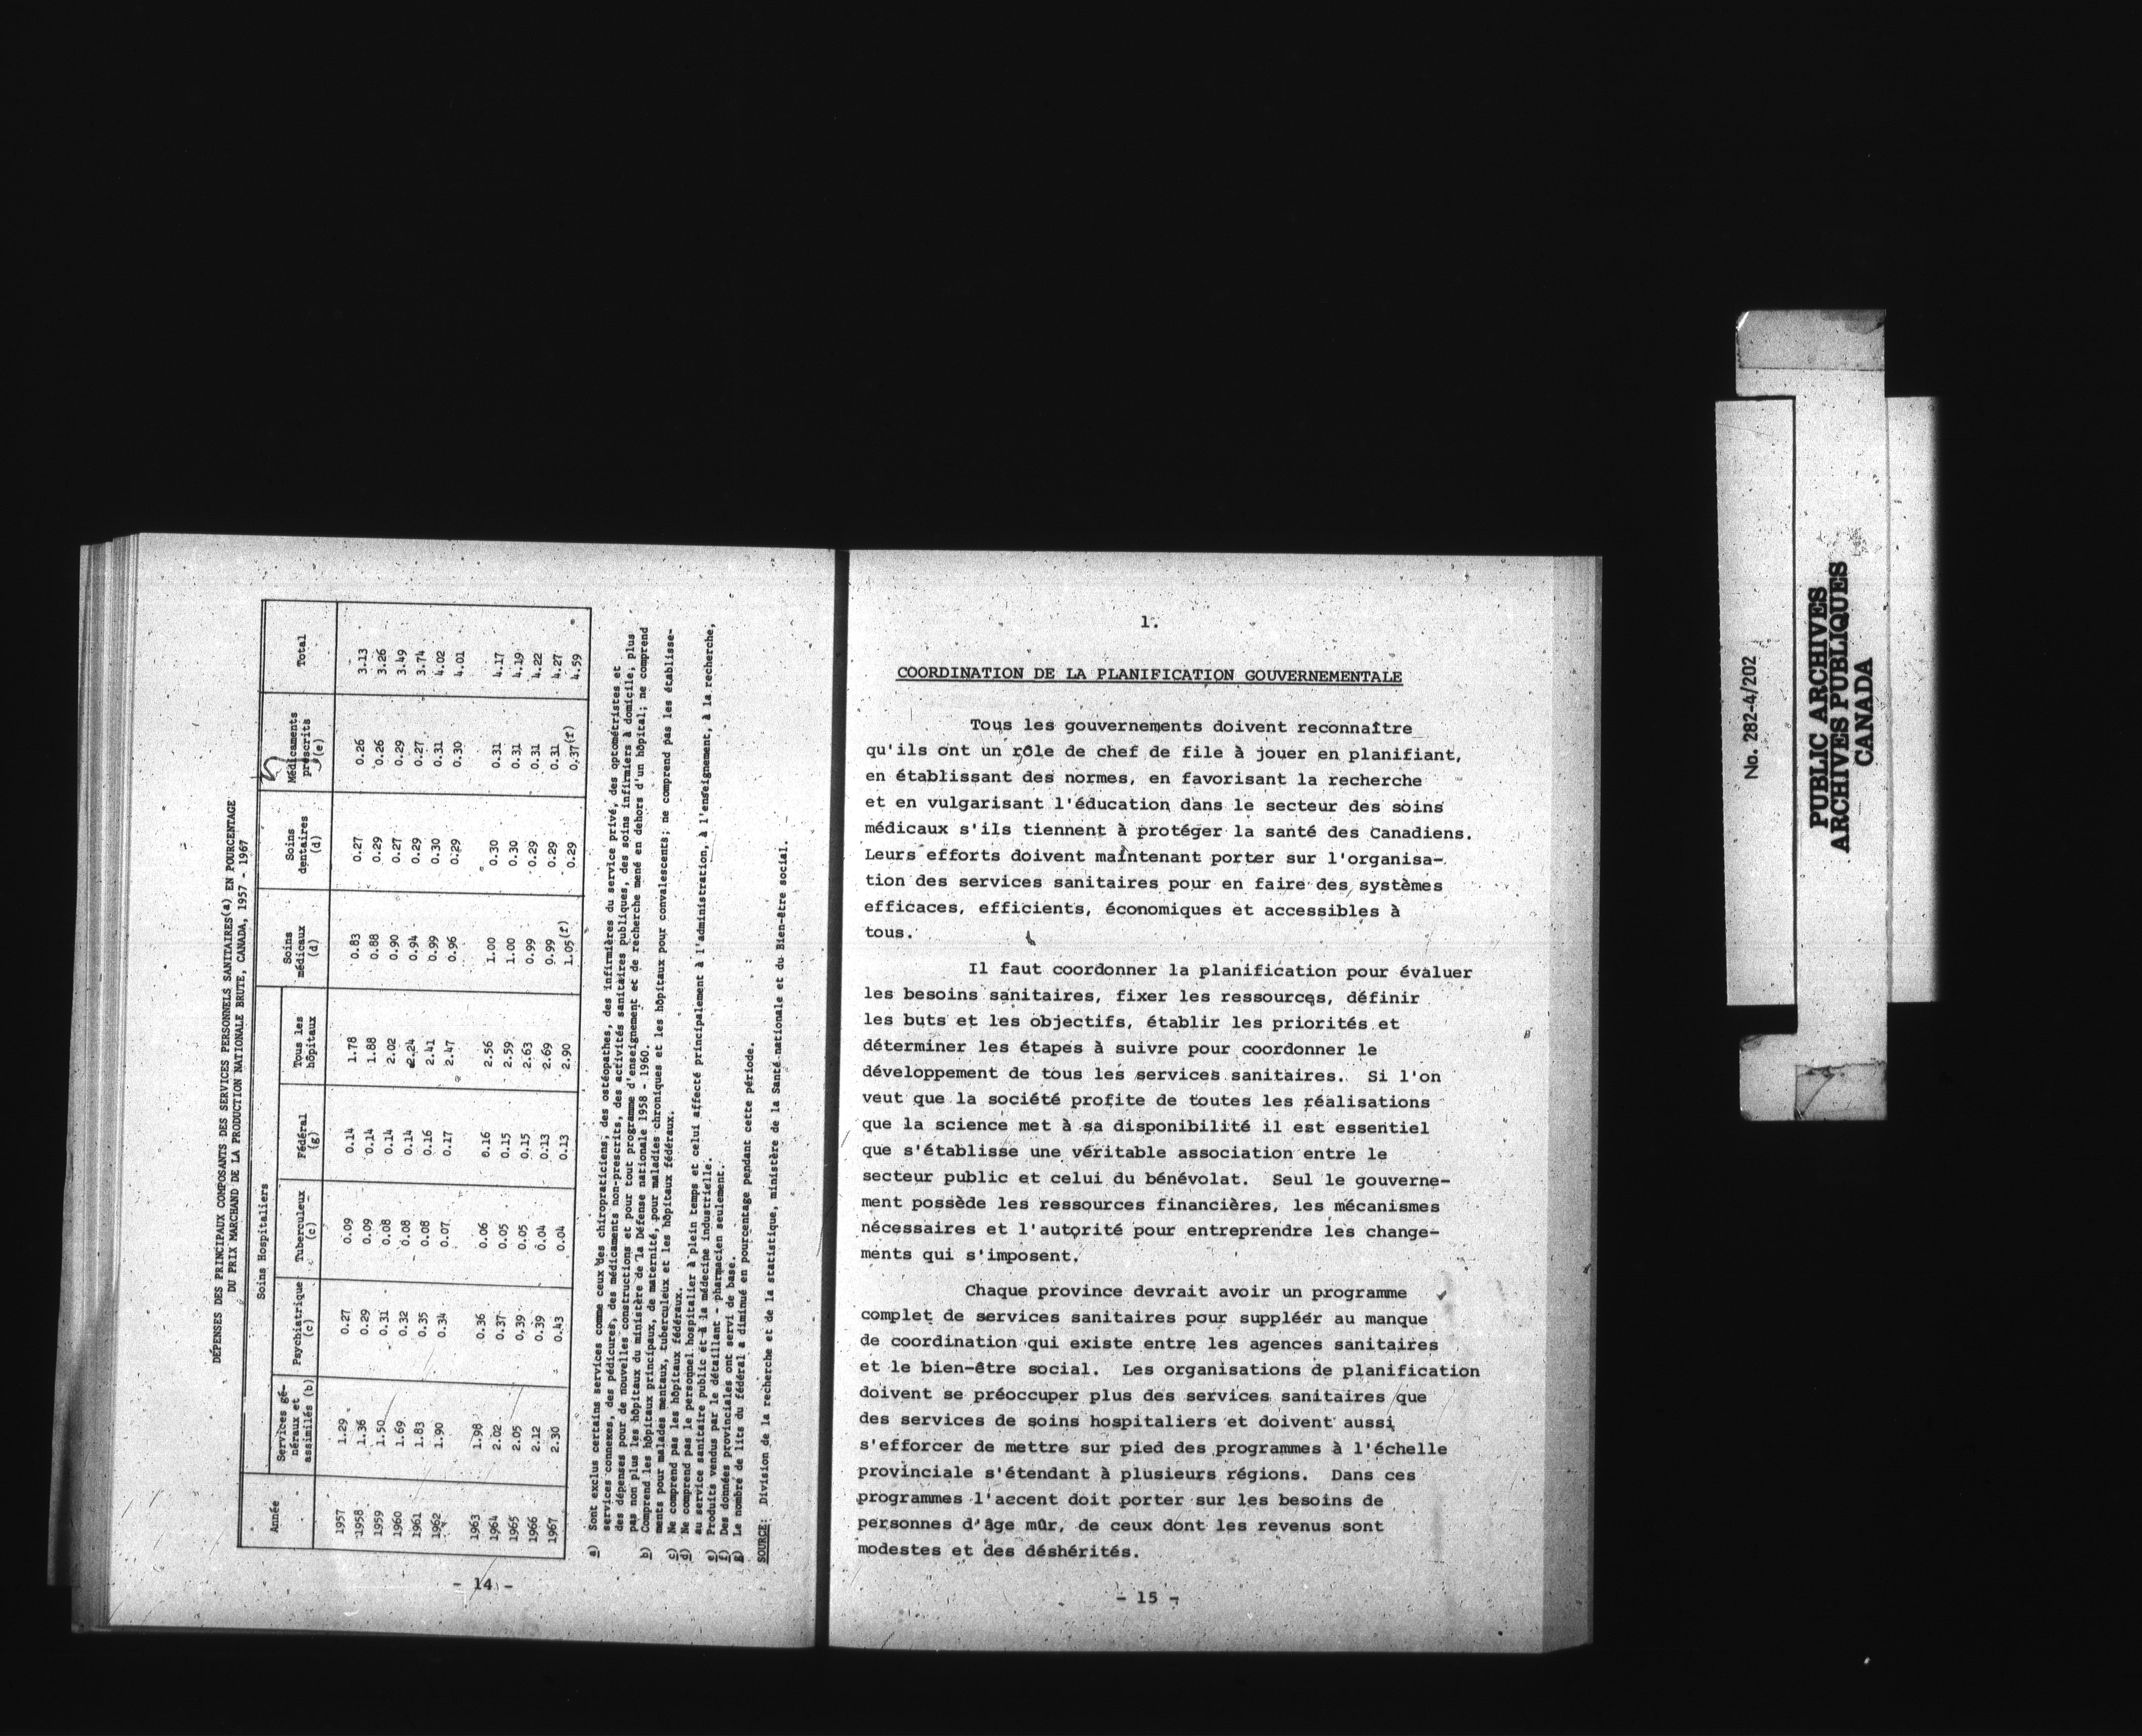 DÉPENSES DES PRINCIPAUX COMPOSANTS DES SERVICES PERSONNELS SANITAIRES(a) EN POURCENTAGE
DU PRIX MARCHAND DE LA PRODUCTION NATIONALE BRUTE, CANADA, 1957 - 1967
Soins Hospitaliers
Année Services gé-néraux et assimilés (b) Psychiatrique (c) Tuberculeux (c) Fédéral (g) Tous les hôpitaux Soins médicaux (d) Soins dentaires (d) Médicaments prescrits (e) Total
1957 1.29 0.27 0.09 0.14 1.78 0.83 0.27 0.26 3.13
1958 1.36 0.29 0.09 0.14 1.88 0.88 0.29 0.26 3.26
1959 1.50 0.31 0.08 0.14 2.02 0.90 0.27 0.29 3.49
1960 1.69 0.32 0.08 0.14 2.24 0.94 0.29 0.27 3.74
1961 1.83 0.35 0.08 0.16 2.41 0.99 0.30 0.31 4.02
1962 1.90 0.34 0.07 0.17 2.47 0.96 0.29 0.30 4.01
1963 1.98 0.36 0.06 0.16 2.56 1.00 0.30 0.31 4.17
1964 2.02 0.37 0.05 0.15 2.59 1.00 0.30 0.31 4.19
1965 2.05 0.39 0.05 0.15 2.63 0.99 0.29 0.31 4.22
1966 2.12 0.39 0.04 0.13 2.69 0.99 0.29 0.31 4.27
1967 2.30 0.43 0.04 0.13 2.90 1.05(f) 0.29 0.37(f) 4.59
a) Sont exclus certains services comme ceux des chiropraticiens, des ostéopathes, des infirmières du service privé, des optométristes et
services connexes, des pédicures, des médicaments non-prescrits, des activités sanitaires publiques, des soins infirmiers à domicile; plus
des dépenses pour de nouvelles constructions et pour tout programme d'enseignement et de recherche mené en dehors d'un hôpital; ne comprend
pas non plus les hôpitaux du ministère de la Défense nationale 1958 - 1960.
b) Comprend les hôpitaux principaux, de maternité, pour maladies chroniques et les hôpitaux pour convalescents; ne comprend pas les établisse-
ments pour malades mentaux, tuberculeux et les hôpitaux fédéraux.
c) Ne comprend pas les hôpitaux fédéraux.
d) Ne comprend pas le personnel hospitalier à plein temps et celui affecté principalement à l'administration, à l'enseignement, à la recherche,
au service sanitaire public et à la médecine industrielle.
e) Produits vendus par le détaillant - pharmacien seulement.
f) Des données provinciales ont servi de base.
g) Le nombre de lits du fédéral a diminué en pourcentage pendant cette période.
SOURCE: Division de la recherche et de la statistique, ministère de la Santé nationale et du Bien-être social.
- 14 -
1.
COORDINATION DE LA PLANIFICATION GOUVERNEMENTALE
Tous les gouvernements doivent reconnaître
qu'ils ont un rôle de chef de file à jouer en planifiant,
en établissant des normes, en favorisant la recherche
et en vulgarisant l'éducation dans le secteur des soins
médicaux s'ils tiennent à protéger la santé des Canadiens.
Leurs efforts doivent maintenant porter sur l'organisa-
tion des services sanitaires pour en faire des systèmes
efficaces, efficients, économiques et accessibles à
tous.
Il faut coordonner la planification pour évaluer
les besoins sanitaires, fixer les ressources, définir
les buts et les objectifs, établir les priorités et
déterminer les étapes à suivre pour coordonner le
développement de tous les services sanitaires. Si l'on
veut que la société profite de toutes les réalisations
que la science met à sa disponibilité il est essentiel
que s'établisse une véritable association entre le
secteur public et celui du bénévolat. Seul le gouverne-
ment possède les ressources financières, les mécanismes
nécessaires et l'autorité pour entreprendre les change-
ments qui s'imposent.
Chaque province devrait avoir un programme
complet de services sanitaires pour suppléér au manque
de coordination qui existe entre les agences sanitaires
et le bien-être social. Les organisations de planification
doivent se préoccuper plus des services sanitaires que
des services de soins hospitaliers et doivent aussi
s'efforcer de mettre sur pied des programmes à l'échelle
provinciale s'étendant à plusieurs régions. Dans ces
programmes l'accent doit porter sur les besoins de
personnes d'âge mûr, de ceux dont les revenus sont
modestes et des déshérités.
- 15 -
No. 282-4/202
PUBLIC ARCHIVES
ARCHIVES PUBLIQUES
CANADA